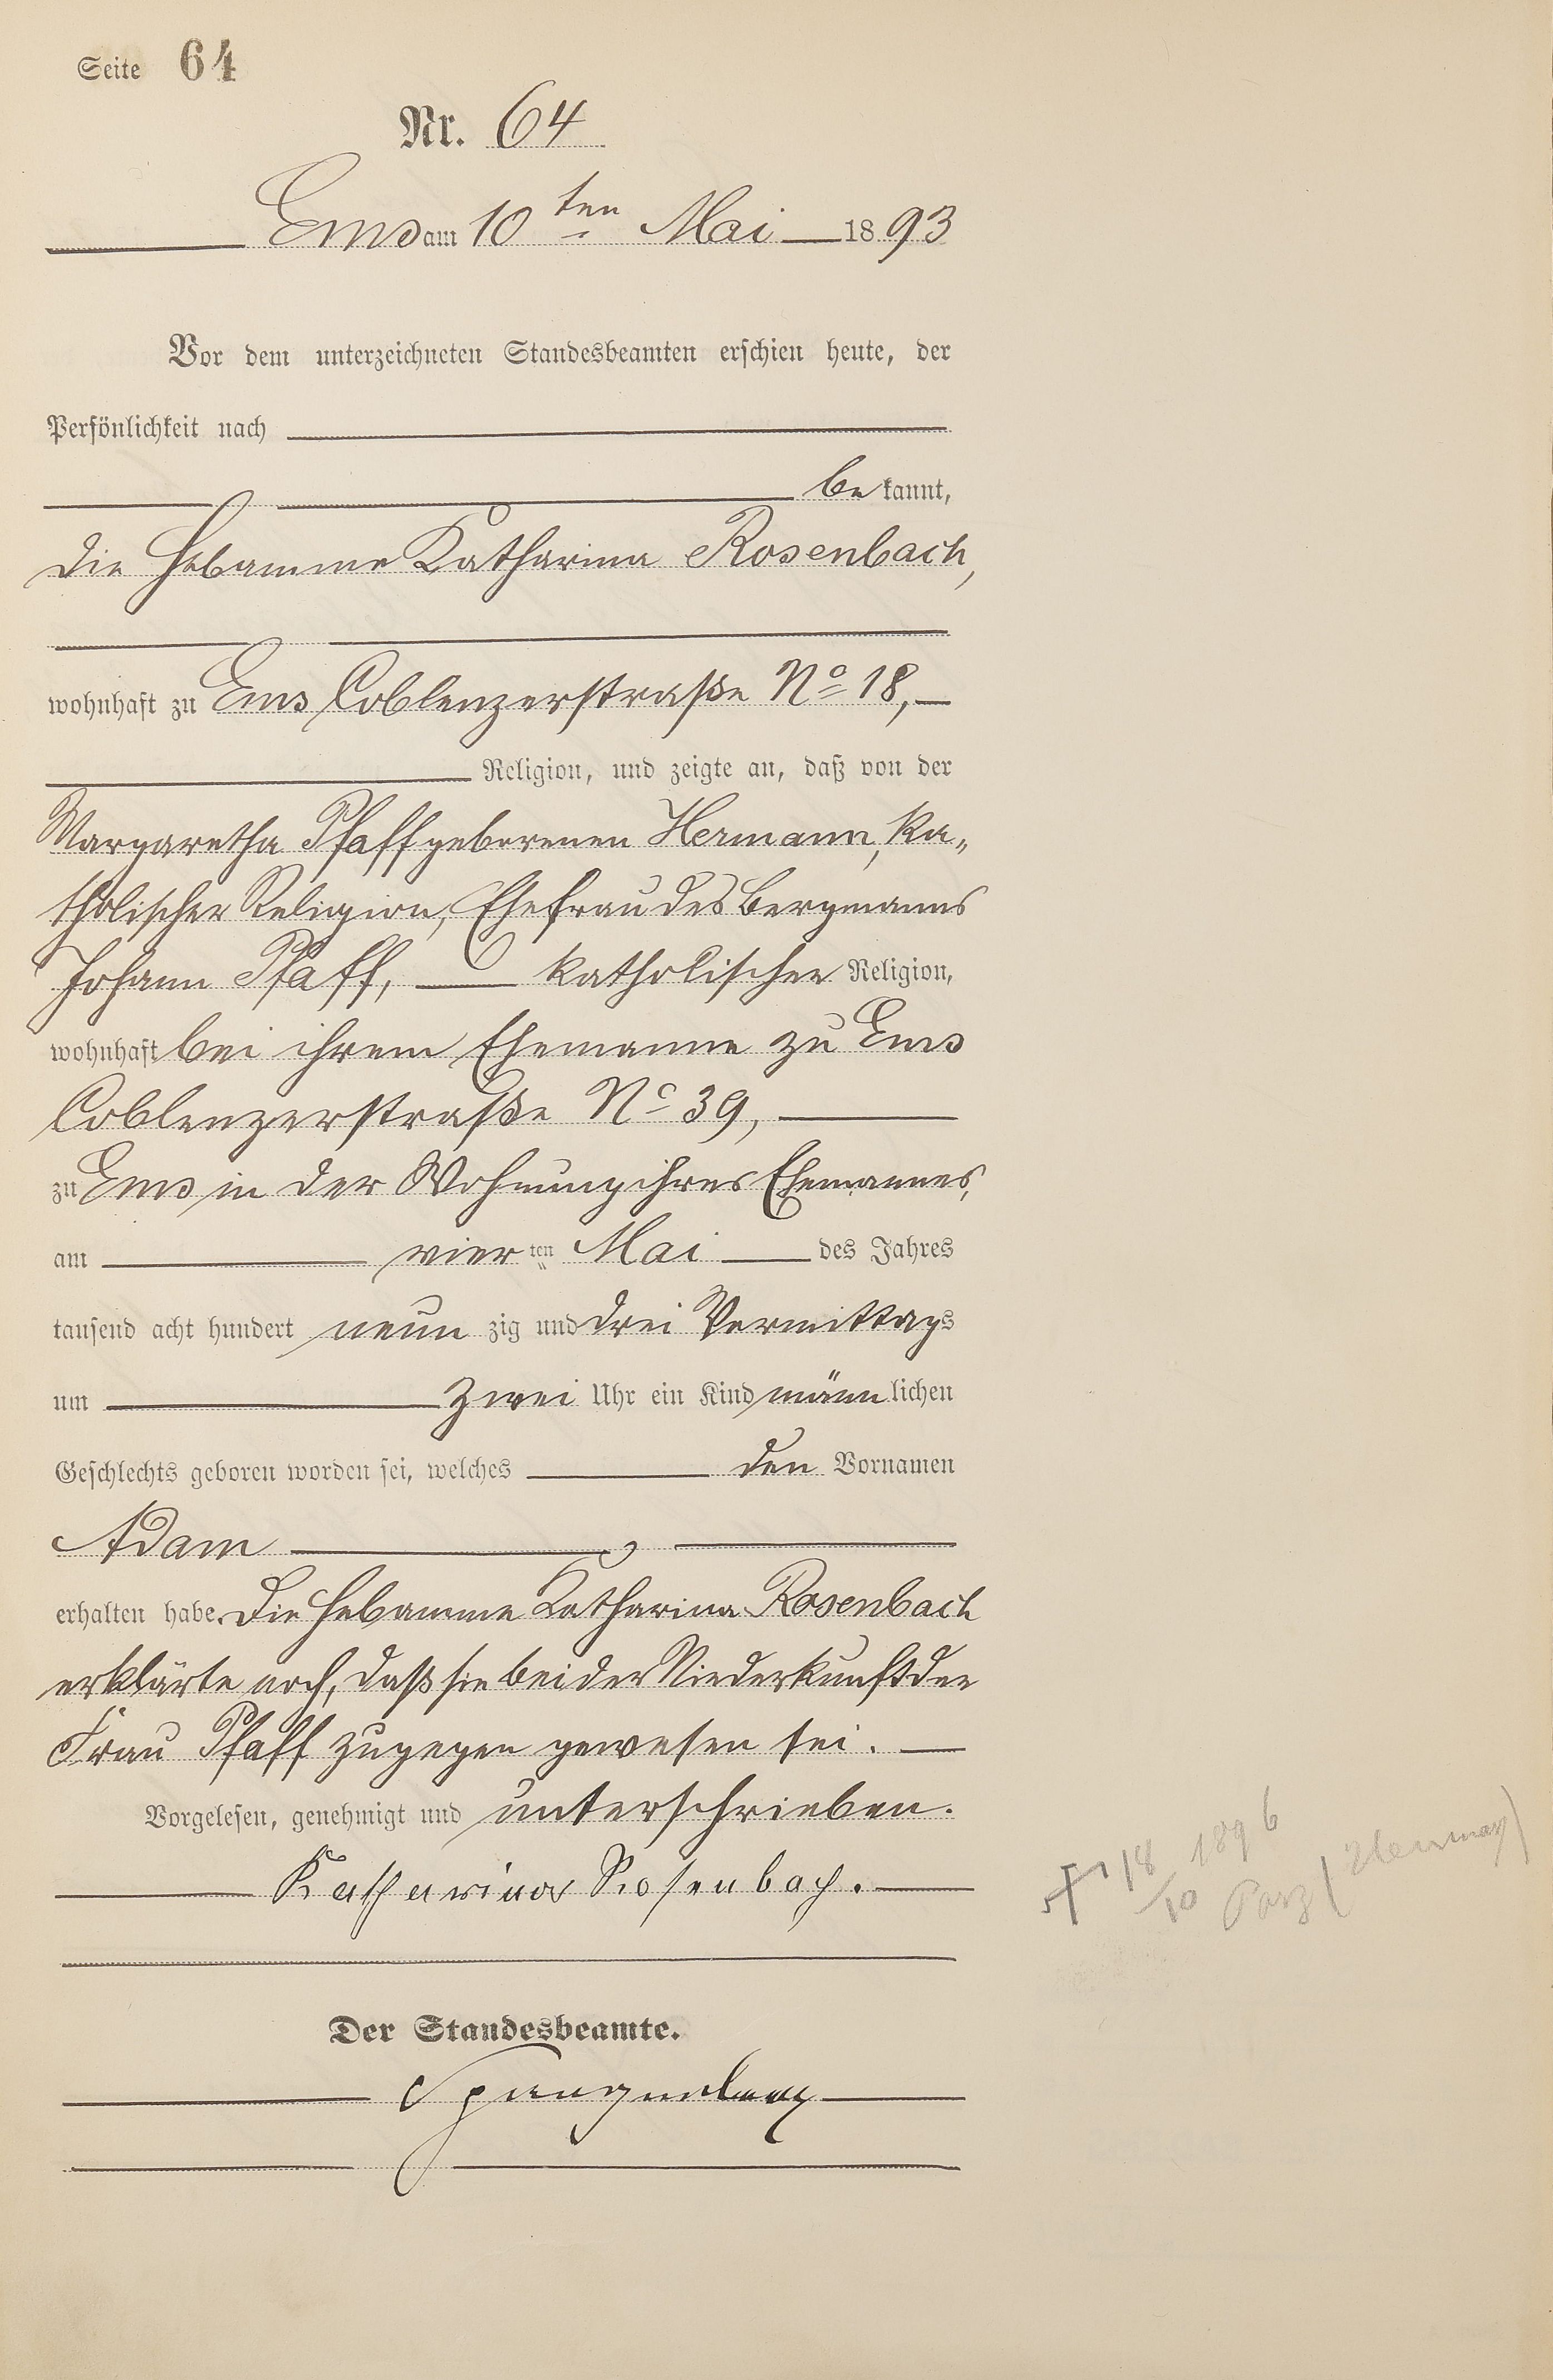 Seite 64
Nr. 64
Ems am 10ten Mai 1893
Vor dem unterzeichneten Standesbeamten erschien heute, der
Persönlichkeit nach
bekannt,
die Hebamme Katharina Rosenbach,
wohnhaft zu Ems Coblenzerstraße No 18,
Religion, und zeigte an, daß von der
Margaretha Pfaff geborenen Hermann, ka„
tholischer Religion, Ehefrau des Bergmanns
Johann Pfaff, katholischer Religion,
wohnhaft bei ihrem Ehemanne zu Ems
Coblenzerstraße No 39,
zu Ems in der Wohnung ihres Ehemannes,
am vierten Mai des Jahres
tausend acht hundert neunzig und drei Vormittags
um zwei Uhr ein Kind männlichen
Geschlechts geboren worden sei, welches den Vornamen
Adam
erhalten habe. Die Hebamme Katharina Rosenbach
erklärte noch, daß sie bei der Niederkunft der
Frau Pfaff zugegen gewesen sei.
Vorgelesen, genehmigt und unterschrieben.
Katharina Rosenbach.
Der Standesbeamte.
Spangenberg
18/10 1896